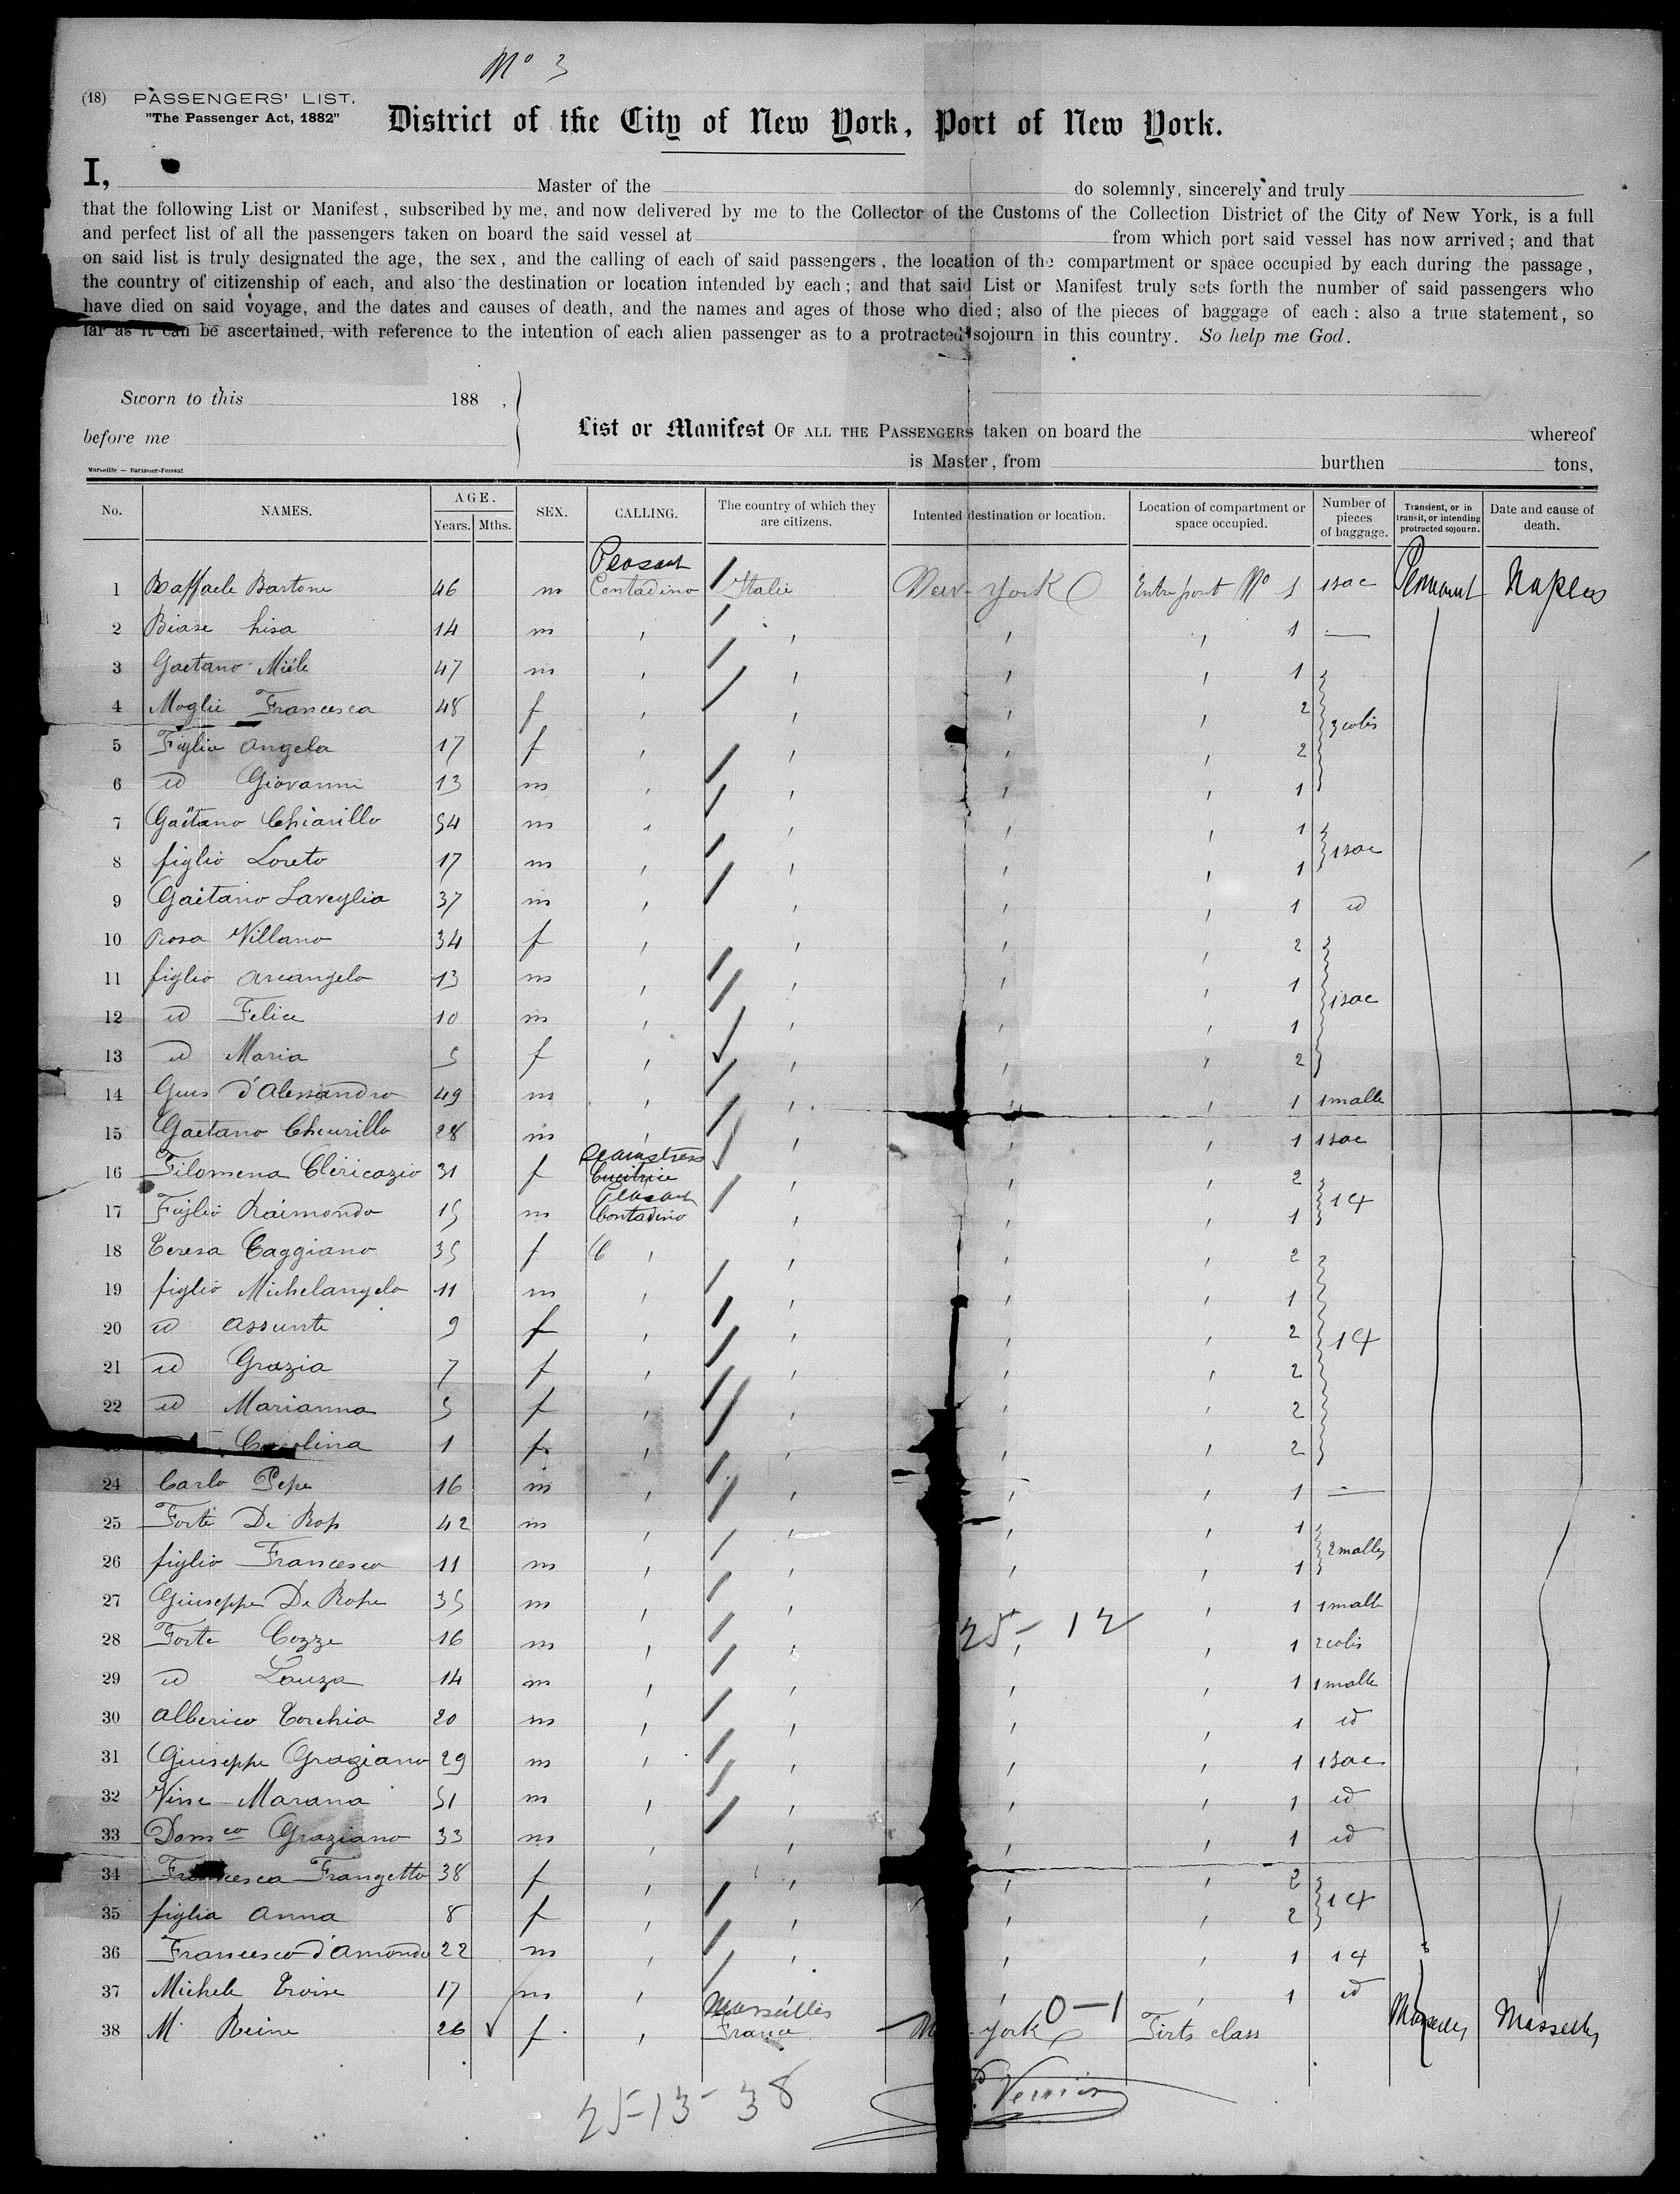 Mo 3
(18) PASSENGERS' LIST.
"The Passenger Act, 1882"
District of the City of New York, Port of New York.
I, Master of the do solemnly, sincerely and truly
that the following List or Manifest, subscribed by me, and now delivered by me to the Collector of the Customs of the Collection District of the City of New York, is a full
and perfect list of all the passengers taken on board the said vessel at from which port said vessel has now arrived; and that
on said list is truly designated the age, the sex, and the calling of each of said passengers, the location of the compartment or space occupied by each during the passage,
the country of citizenship of each, and also the destination or location intended by each; and that said List or Manifest truly sets forth the number of said passengers who
have died on said voyage, and the dates and causes of death, and the names and ages of those who died; also of the pieces of baggage of each: also a true statement, so
far as it can be ascertained, with reference to the intention of each alien passenger as to a protracted sojourn in this country. So help me God.
Sworn to this 188 ,
before me
List or Manifest OF ALL THE PASSENGERS taken on board the whereof
is Master, from burthen tons,
No. NAMES. AGE. Years. Mths. SEX. CALLING. The country of which they are citizens. Intented destination or location. Location of compartment or space occupied. Number of pieces of baggage. Transient, or in transit, or intending protracted sojourn. Date and cause of death.
Peasant
1 Raffaele Bartone 46 m Contadino Italie New-York Entrepont No 1 1 sac Permanent Naples
2 Biase Lisa 14 m , , , , 1 —
3 Gaetano Miele 47 m , , , , 1
4 Moglie Francesca 48 f , , , , 2 3 colis
5 Figlia Angela 17 f , , , , 2
6 id Giovanni 13 m , , , , 1
7 Gaëtano Chiarillo 54 m , , , , 1
8 figlio Loreto 17 m , , , , 1 1 sac
9 Gaëtano Laveglia 37 m , , , , 1 id
10 Rosa Villano 34 f , , , , 2
11 figlio Arcangelo 13 m , , , , 1
12 id Felice 10 m , , , , 1 1 sac
13 id Maria 5 f , , , , 2
14 Gius d'Alessandro 49 m , , , , 1 1 malle
15 Gaetano Cheurillo 28 m , , , , 1 1 sac
Seamstress
16 Filomena Clericazio 31 f Cucitrice , , , 2
Peasant
17 Figlio Raimondo 15 m Contadino , , , 1 1 4
18 Teresa Caggiano 35 f C , , , , 2
19 figlio Michelangelo 11 m , , , , 1
20 id Assunta 9 f , , , , 2 1 4
21 id Grazia 7 f , , , , 2
22 id Marianna 5 f , , , , 2
Carolina 1 f , , , , 2
24 Carlo Pepe 16 m , , , , 1 —
25 Forte De 42 m , , , , 1
26 figlio Francesco 11 m , , , , 1 2 malles
27 Giuseppe De 35 m , , , , 1 1 malle
25-12
28 Forte Cozze 16 m , , , , 1 2 colis
29 id Lauza 14 m , , , , 1 1 malle
30 Alberico Torchia 20 m , , , , 1 id
31 Giuseppe Graziano 29 m , , , , 1 1 sac
32 Vinc Marana 51 m , , , , 1 id
33 Domco Graziano 33 m , , , , 1 id
34 Francesca Frangetto 38 f , , , , 2
35 figlia Anna 8 f , , , , 2 1 4
36 Francesco d'Amondo 22 m , , , , 1 1 4
37 Michele Troise 17 m , , , , 1 id
Marseilles 0-1
38 M. Reine 26 f , France York Firts class Marseilles Marseilles
25-13-38